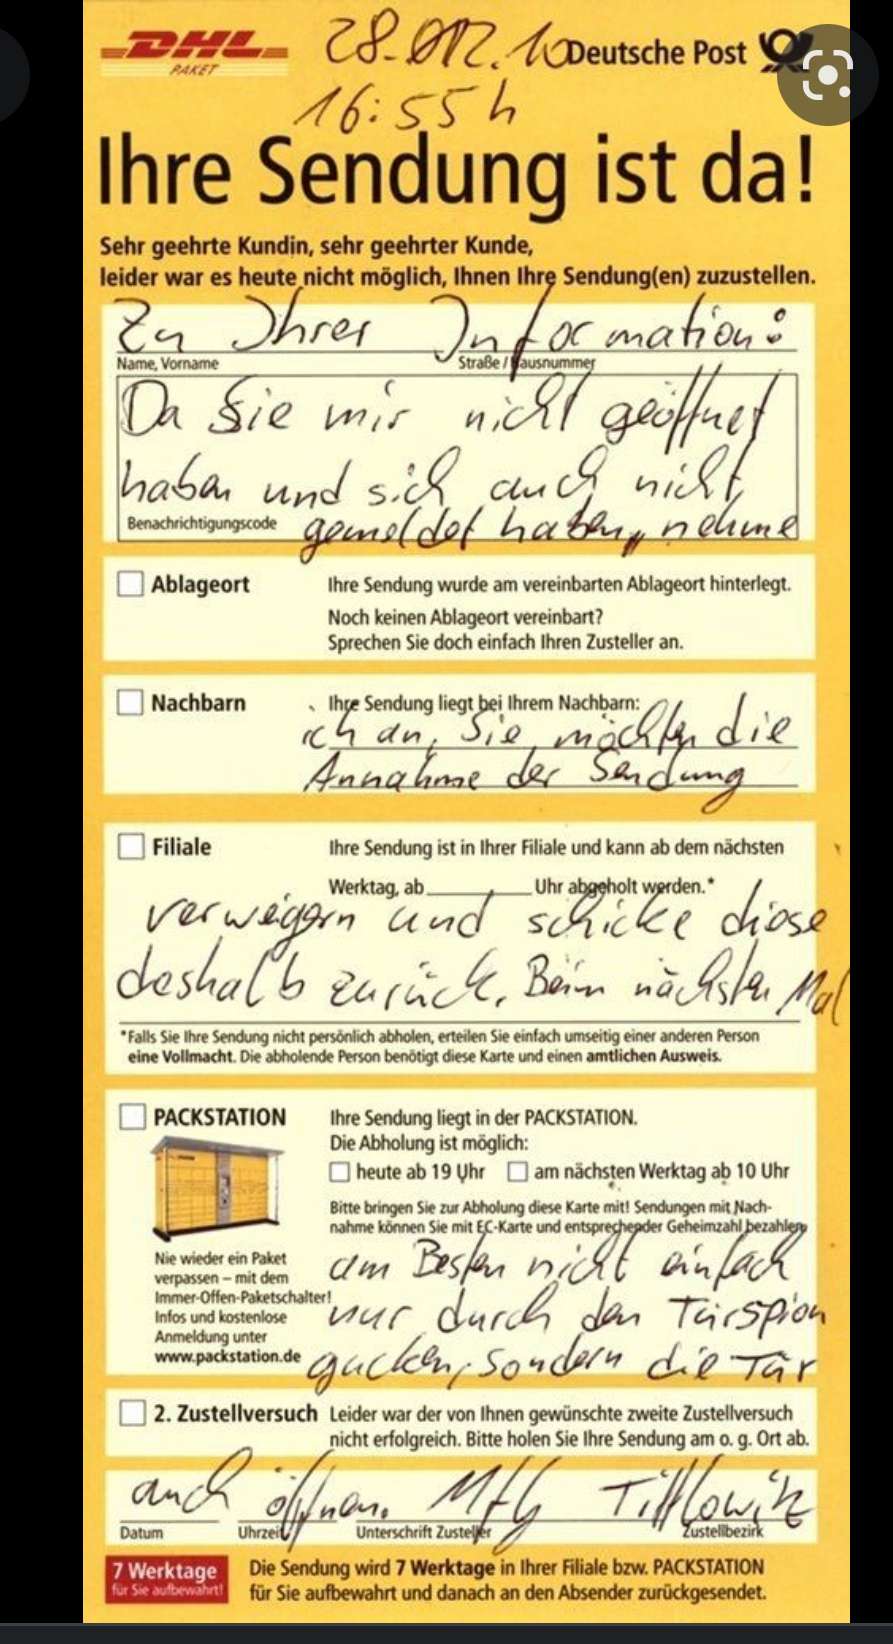 DHL
PAKET
Deutsche Post
16:55 h
Ihre Sendung ist da!
Sehr geehrte Kundin, sehr geehrter Kunde,
leider war es heute nicht möglich, Ihnen Ihre Sendung(en) zuzustellen.
Zu Ihrer Information:
Name, Vorname
Straße / Hausnummer
Da Sie mir nicht geöffnet
haben und sich auch nicht
Benachrichtigungscode
gemeldet haben, nehme
Ablageort
Ihre Sendung wurde am vereinbarten Ablageort hinterlegt.
Noch keinen Ablageort vereinbart?
Sprechen Sie doch einfach Ihren Zusteller an.
Nachbarn
Ihre Sendung liegt bei Ihrem Nachbarn:
ich an, Sie möchten die
Annahme der Sendung
Filiale
Ihre Sendung ist in Ihrer Filiale und kann ab dem nächsten
Werktag, ab Uhr abgeholt werden.*
verweigern und schicke diese
deshalb zurück. Beim nächsten Mal
*Falls Sie Ihre Sendung nicht persönlich abholen, erteilen Sie einfach umseitig einer anderen Person
eine Vollmacht. Die abholende Person benötigt diese Karte und einen amtlichen Ausweis.
PACKSTATION
Ihre Sendung liegt in der PACKSTATION.
Die Abholung ist möglich:
heute ab 19 Uhr
am nächsten Werktag ab 10 Uhr
Bitte bringen Sie zur Abholung diese Karte mit! Sendungen mit Nach-
nahme können Sie mit EC-Karte und entsprechender Geheimzahl bezahlen.
Nie wieder ein Paket
verpassen – mit dem
Immer-Offen-Paketschalter!
Infos und kostenlose
Anmeldung unter
www.packstation.de
am Besten nicht einfach
nur durch den Türspion
gucken, sondern die Tür
2. Zustellversuch
Leider war der von Ihnen gewünschte zweite Zustellversuch
nicht erfolgreich. Bitte holen Sie Ihre Sendung am o. g. Ort ab.
auch öffnen. MfG Tittlowitz
Datum
Uhrzeit
Unterschrift Zusteller
Zustellbezirk
7 Werktage
für Sie aufbewahrt!
Die Sendung wird 7 Werktage in Ihrer Filiale bzw. PACKSTATION
für Sie aufbewahrt und danach an den Absender zurückgesendet.